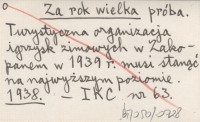 Za rok wielka próba.
Turystyczna organizacja
igrzysk zimowych w Zako-
panem w 1939 r. musi stanąć
na najwyższym poziomie.
1938. – IKC nr 63.